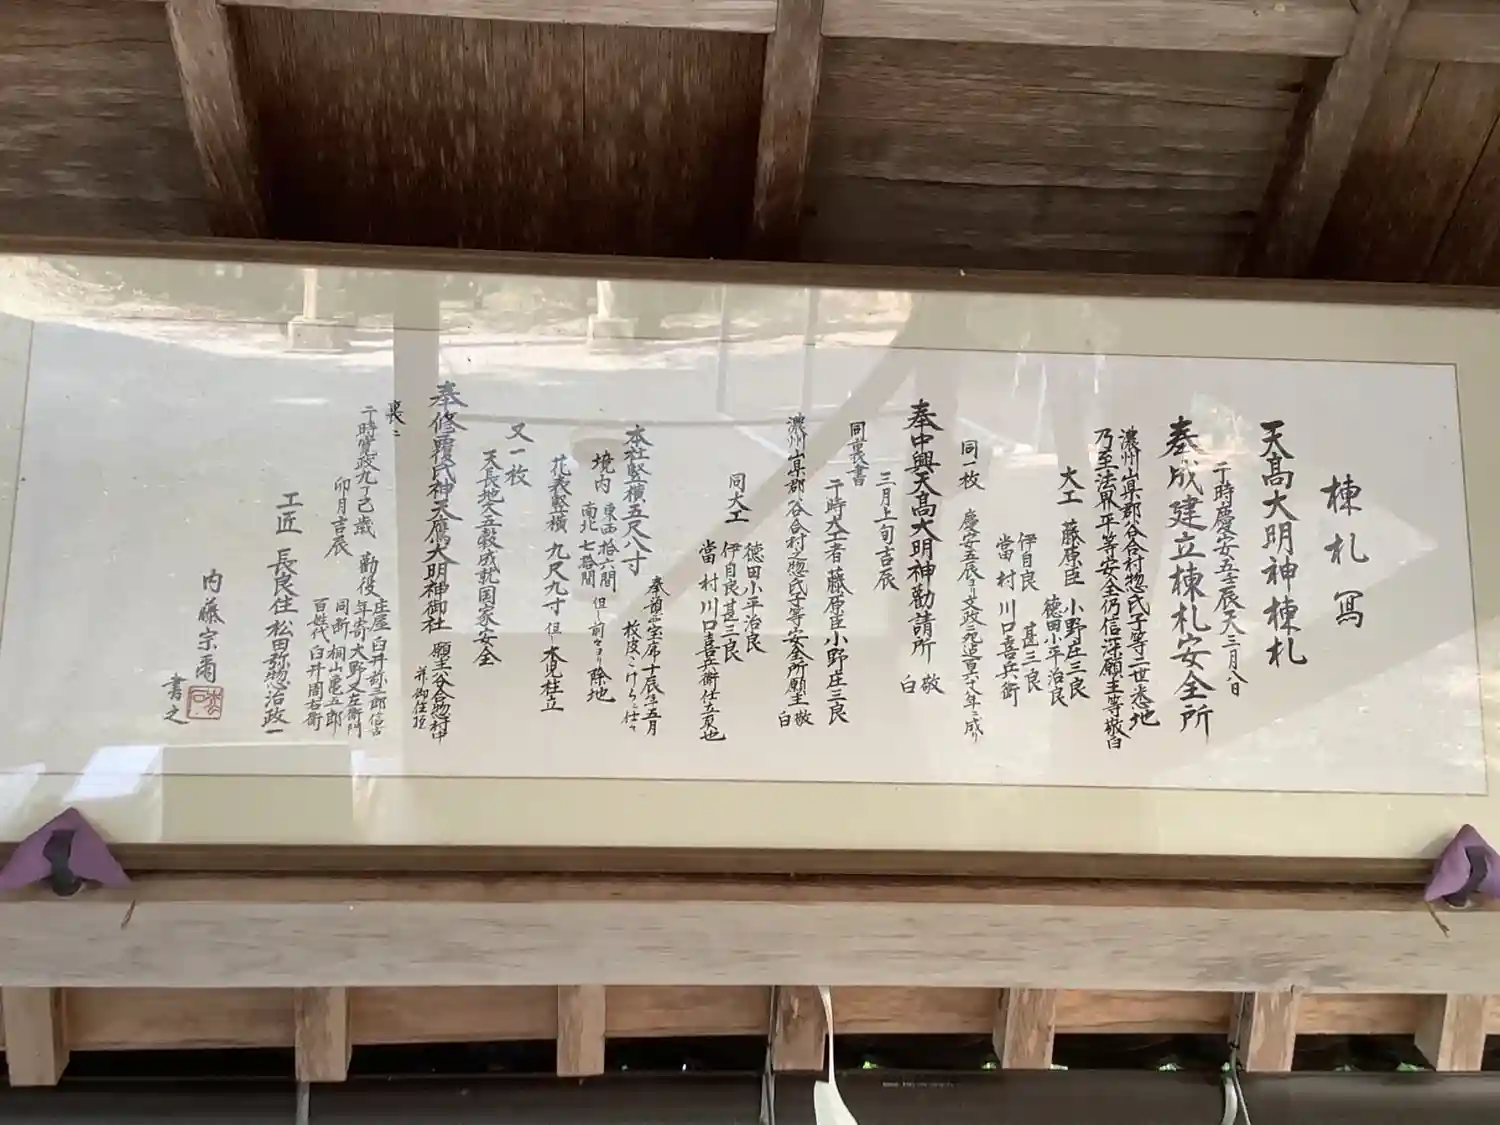 棟札写
天髙大明神棟札
于時慶安五壬辰天三月八日
奉成建立棟札安全所
濃州山県郡谷合村惣氏子等二世悉地
乃至法界平等安全仍信深願主等敬白
大工 藤原臣 小野庄三良
徳田小平治良
伊自良 甚三良
當村 川口喜兵衛
同一枚 慶安五辰ヨリ文政元迄百六十八年ニ成リ
奉中興天髙大明神勧請所 敬白
三月上旬吉辰
同裏書
于時大工者 藤原臣小野庄三良
濃州山県郡谷合村之惣氏子等安全所願主敬白
同大工
徳田小平治良
伊自良甚三良
當村川口喜兵衛
本社竪横五尺八寸
境内 東西拾六間 南北七拾間 但シ前々ヨリ除地
花表竪横 九尺九寸 但 木児柱立
又一枚
天長地久五穀成就国家安全
奉修覆氏神天鷹大明神御社 願主谷合惣村中
裏ニ
于時寛政九丁巳歳
卯月吉辰
勧役
庄屋 臼井弥三郎信吉
年寄 大野又左衛門
同断 桐山亀五郎
百姓代 臼井周右衛
工匠 長良住松田弥惣治政一
内藤宗爾
書之